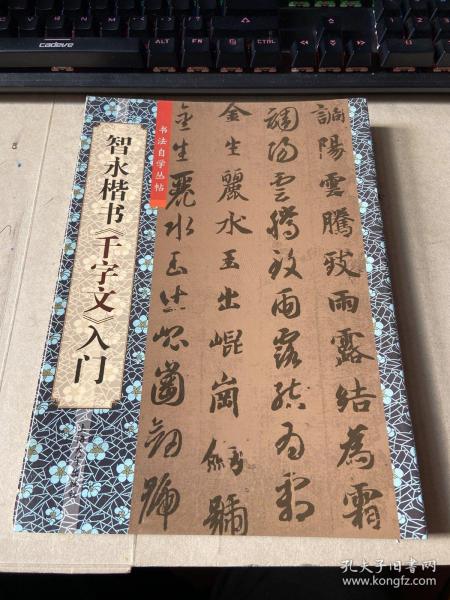 cadeve
ALT
CTRL
智永楷书《千字文》入门
书法自学丛帖
調陽雲騰致雨露結為霜
調陽雲騰致雨露結為霜
金生麗水玉出崐崗劍號
金生麗水玉出崐崗劍號
孔夫子旧书网
www.kongfz.com